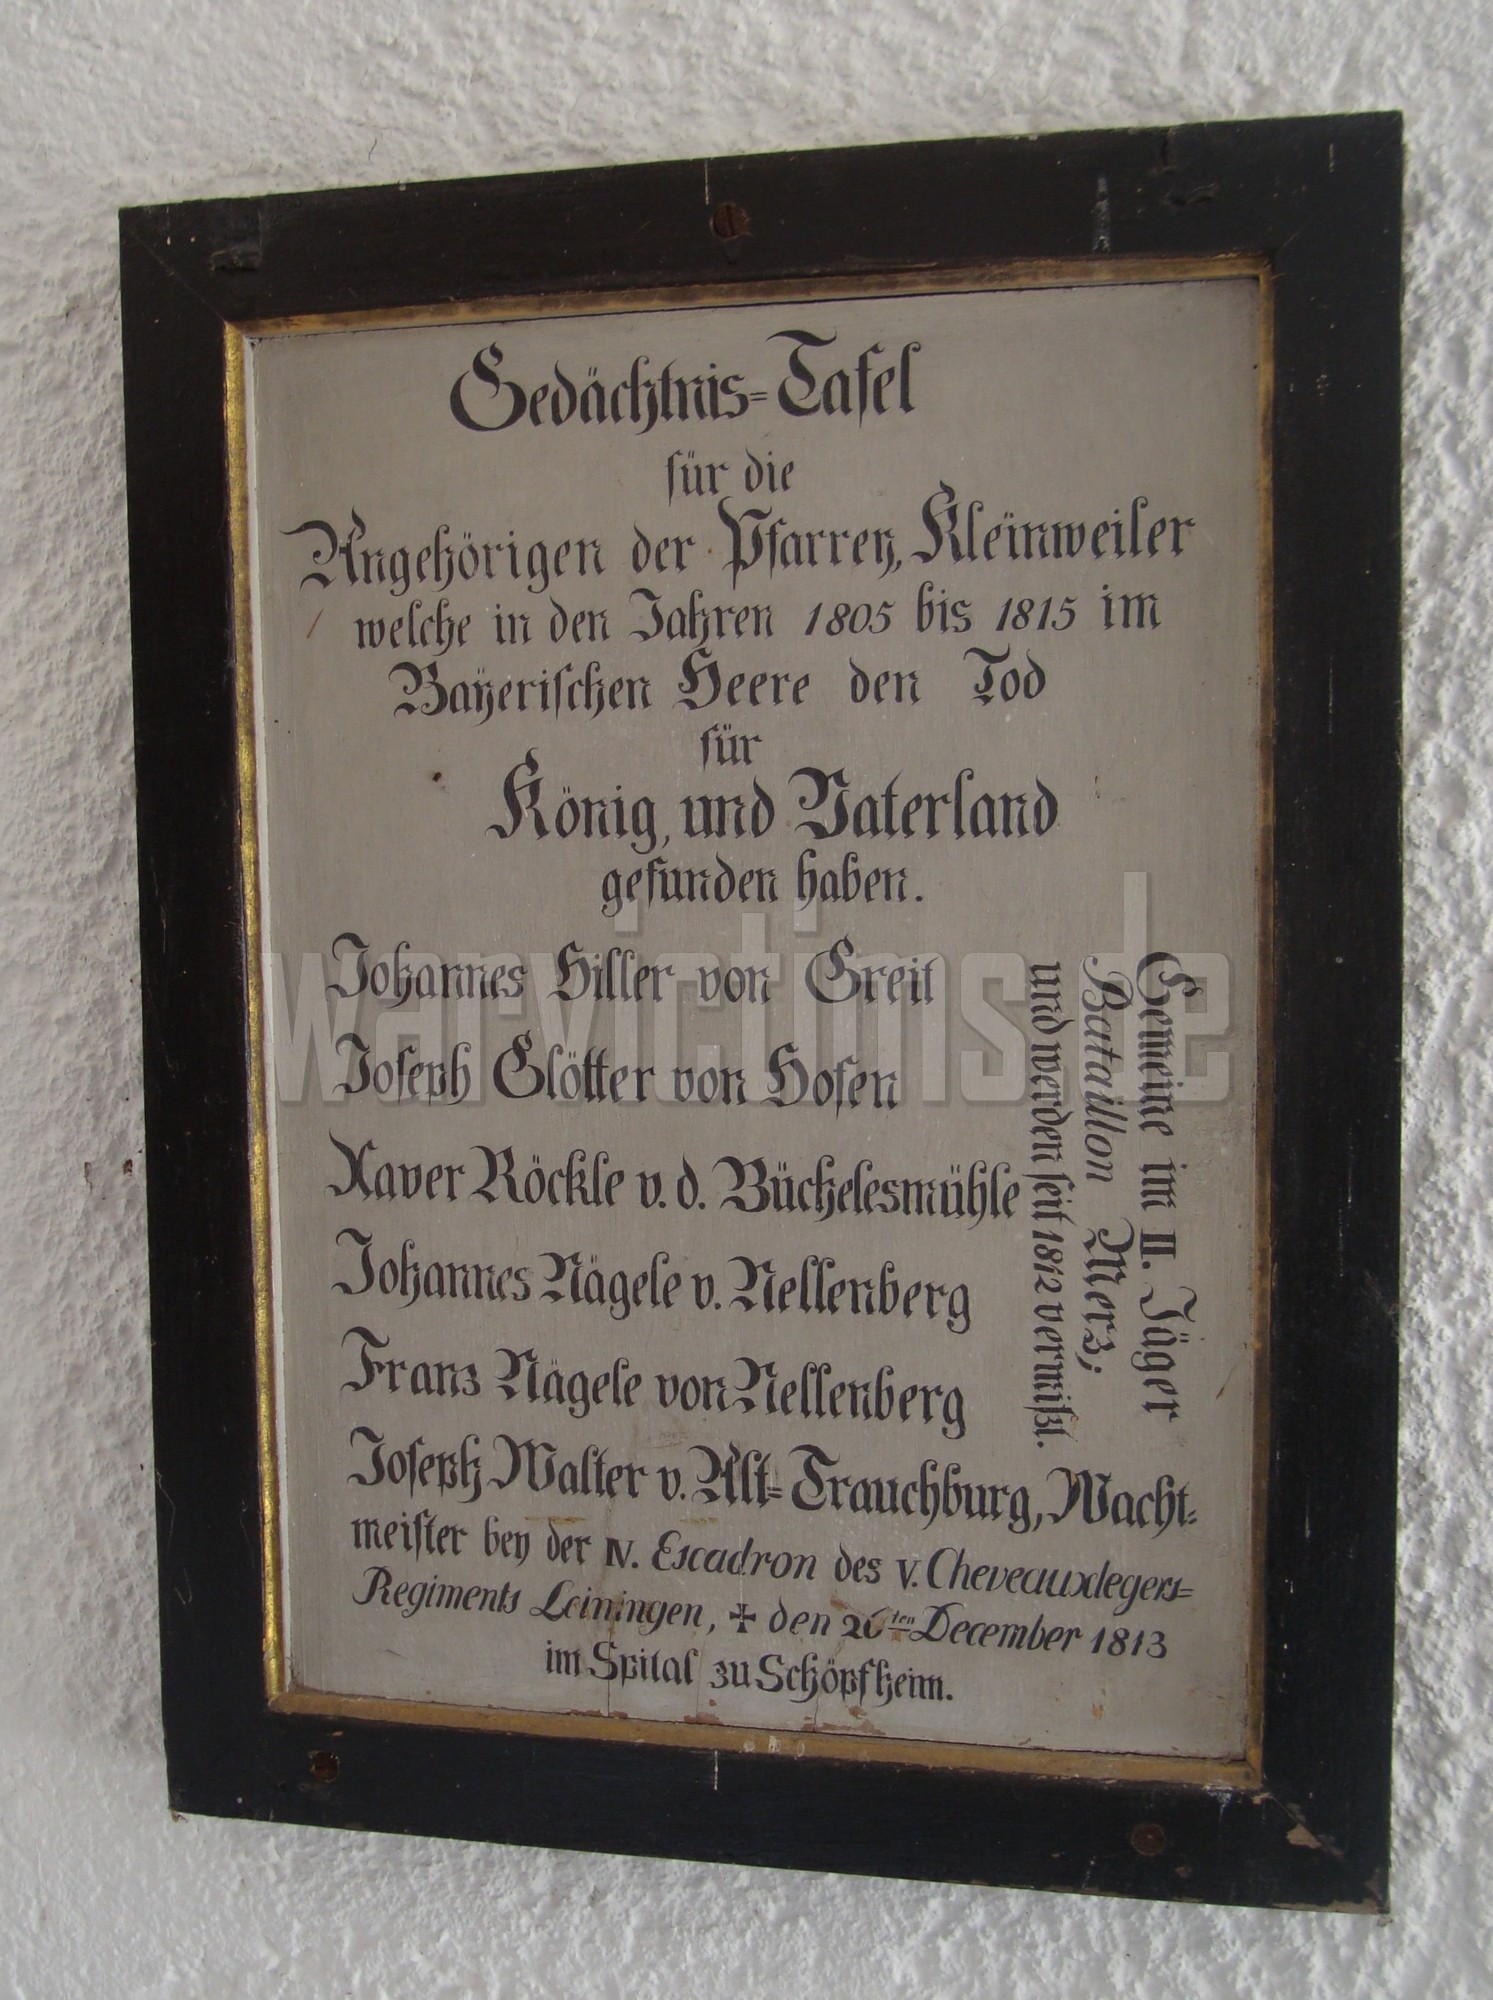 Gedächtnis=Tafel
für die
Angehörigen der Pfarrey, Kleinweiler
welche in den Jahren 1805 bis 1815 im
Bayerischen Heere den Tod
für
König, und Vaterland
gefunden haben.
Johannes Hiller von Greit
Joseph Glötter von Hofen
Xaver Röckle v. d. Büchelesmühle
Johannes Nägele v. Nellenberg
Franz Nägele von Nellenberg
Gemeine im II. Jäger
Bataillon Merz;
und werden seit 1812 vermißt.
Joseph Walter v. Alt=Trauchburg, Wacht=
meister bey der IV. Escadron des V. Cheveauxlegers=
Regiments Leiningen, ✠ den 26ten December 1813
im Spital zu Schöpfheim.
warvictims.de